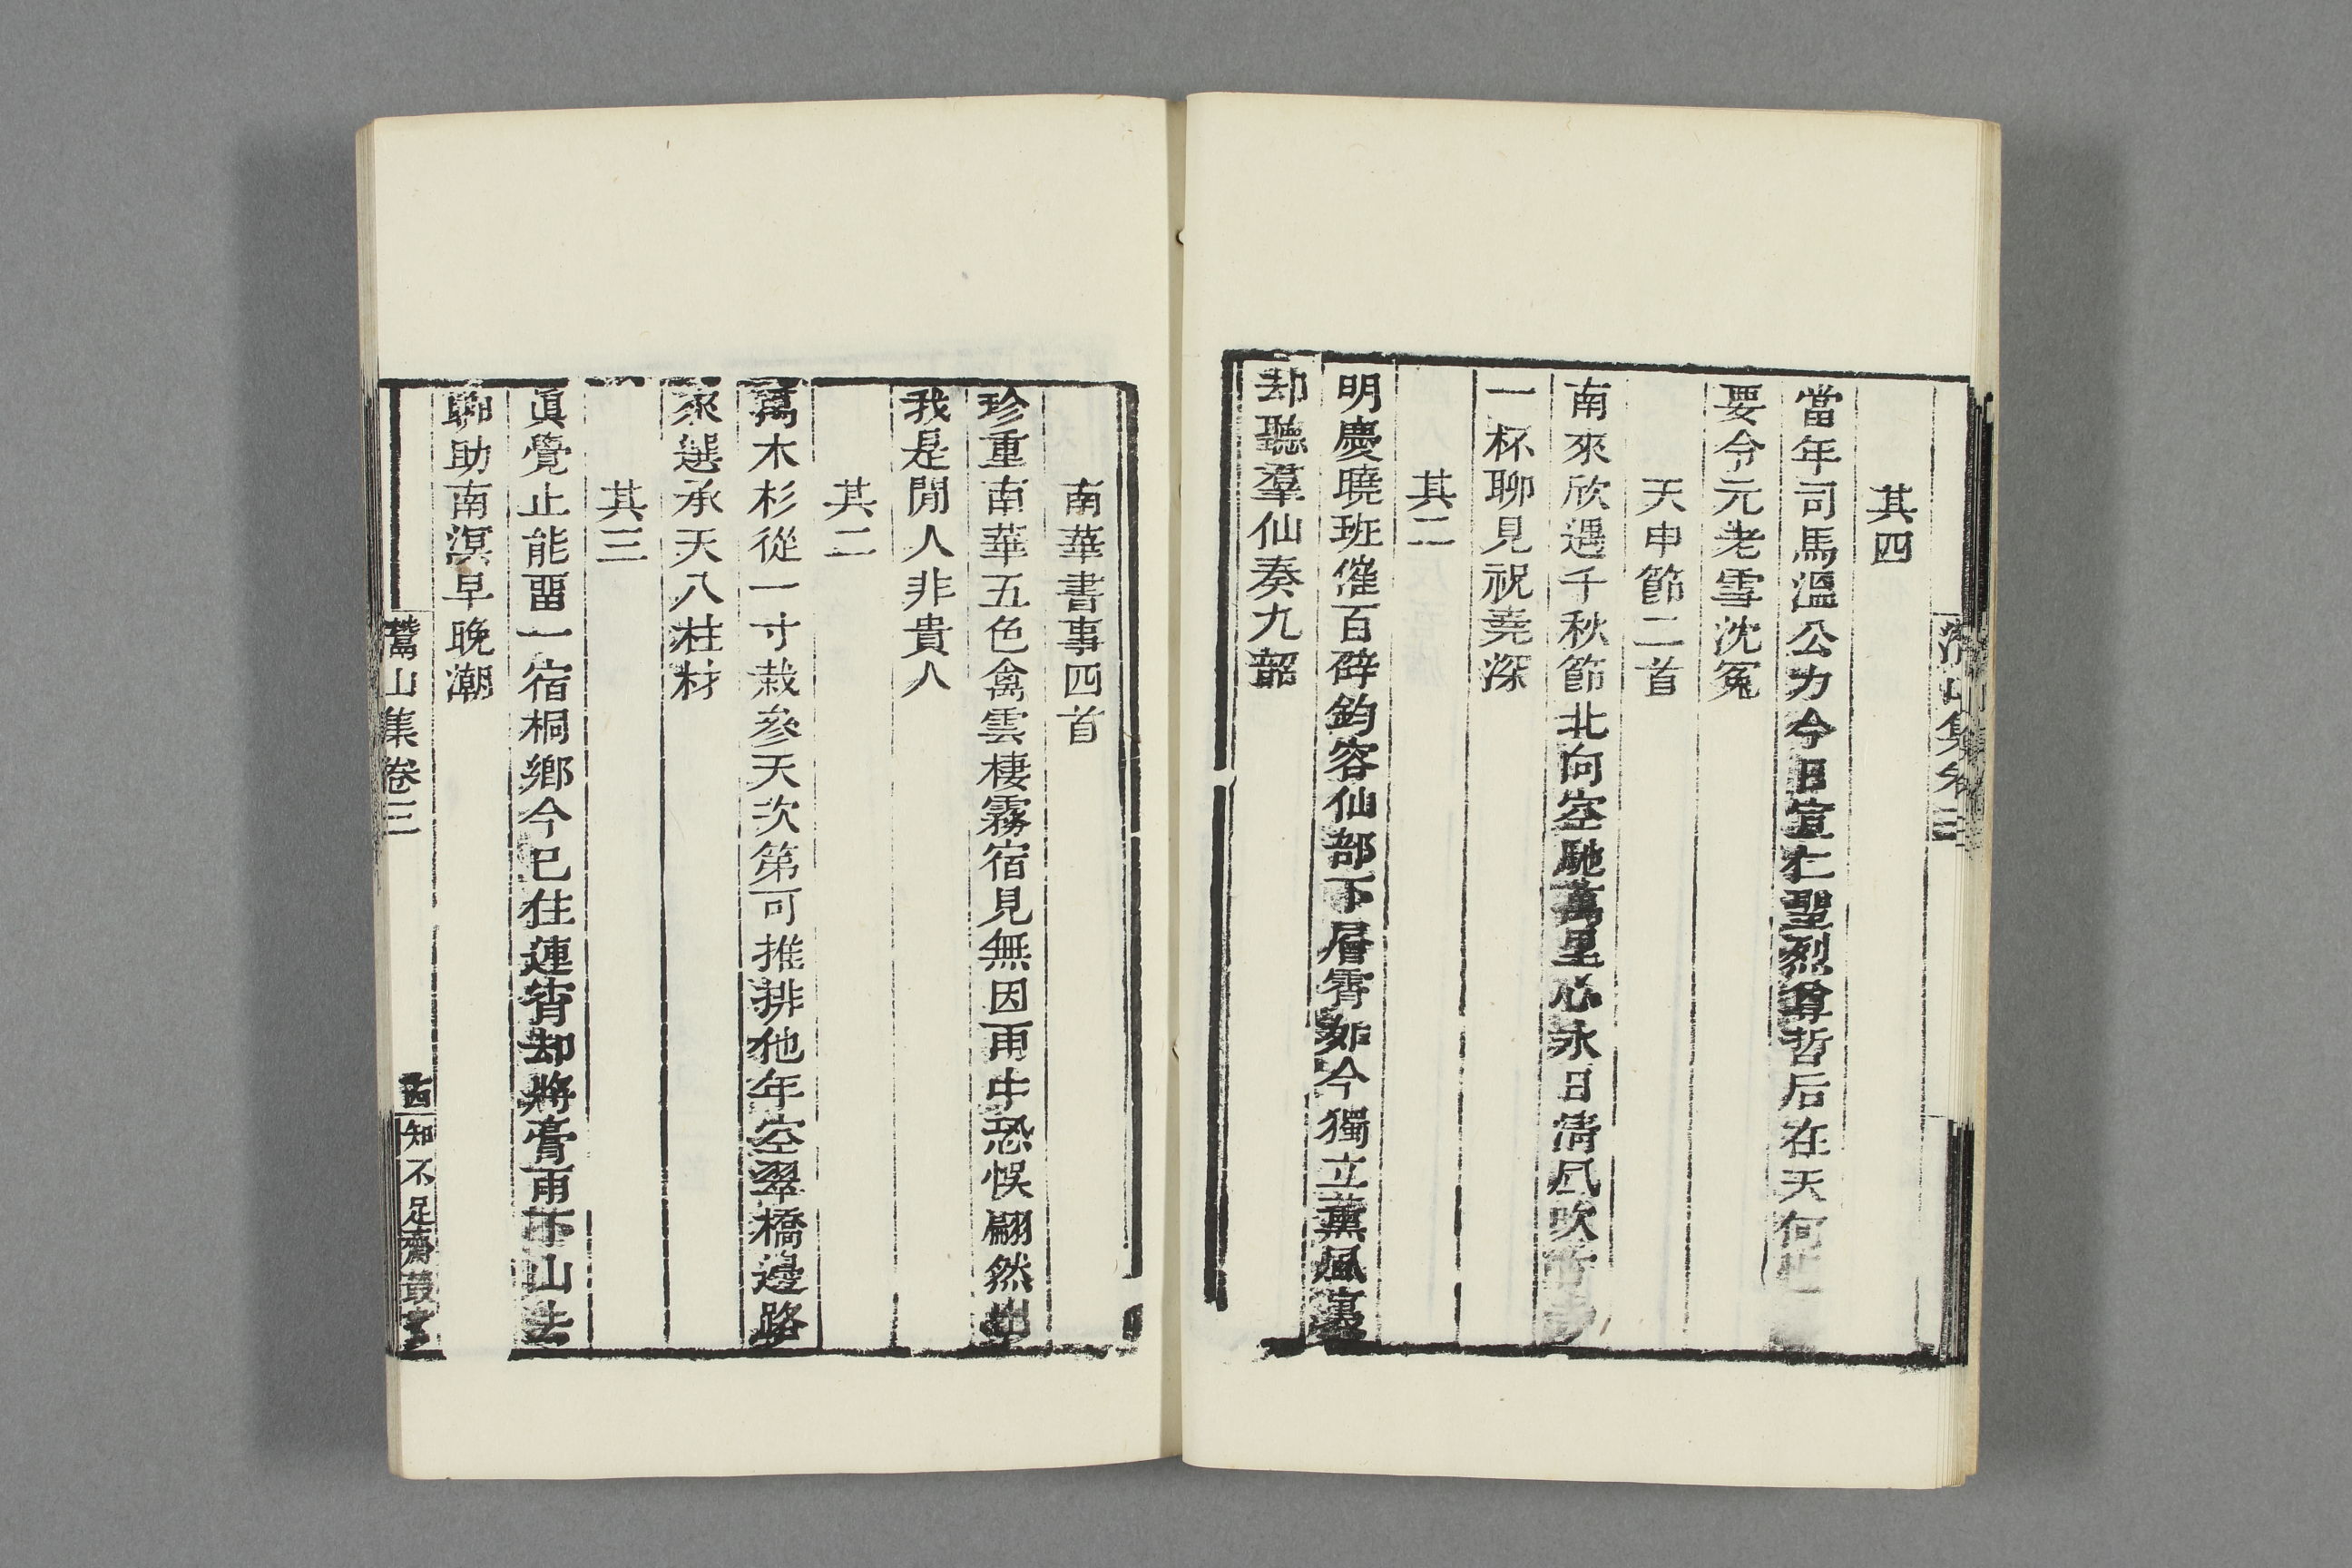 其四
當年司馬溫公力今日宣仁聖烈尊哲后在天何
要令元老雪沈冤
天申節二首
南來欣遇千秋節北向空馳萬里心永日淸風吹
一杯聊見祝堯深
其二
明慶曉班催百辟鈞容仙部下層霄如今獨立薰風裏
却聽羣仙奏九韶
南華書事四首
珍重南華五色禽雲棲霧宿見無因雨中恐悞翩然出
我是閒人非貴人
其二
萬木杉從一寸栽參天次第可推排他年空翠橋邊路
來選承天八柱材
其三
眞覺止能畱一宿桐鄕今已住連宵却將膏雨下山去
聊助南溟早晚潮
灊山集卷三
知不足齋叢書